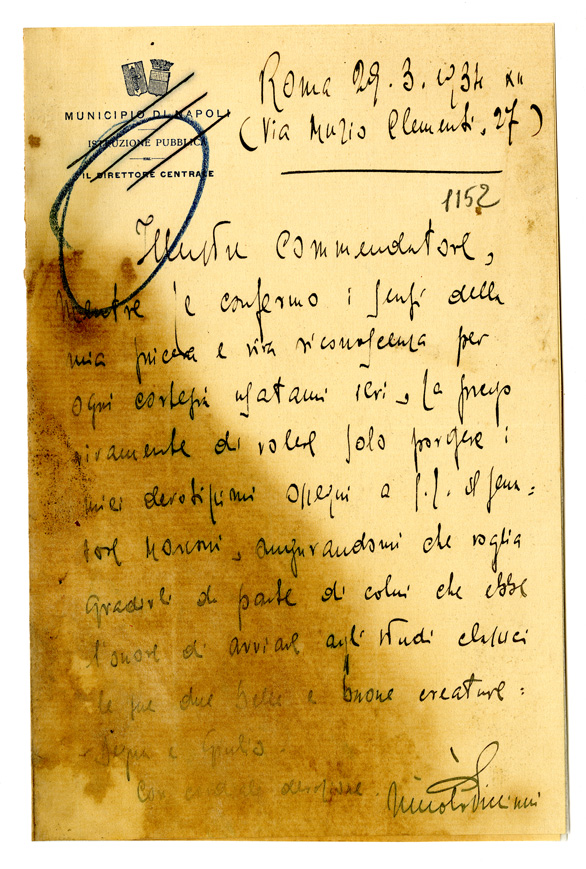 MUNICIPIO DI NAPOLI
ISTRUZIONE PUBBLICA
IL DIRETTORE CENTRALE
Roma 29. 3. 1934 XII
(Via Muzio Clementi, 27)
1152
Illustre Commendatore,
Mentre Le confermo i sensi della
mia sincera e viva riconoscenza per
ogni cortesia usatami ieri, La prego
vivamente di volere solo porgere i
miei devotissimi ossequi a S. E. il Sena=
tore Marconi, augurandomi che voglia
gradirli da parte di colui che ebbe
l'onore di avviare agli studi classici
le sue due belle e buone creature:
Degna e Giulio.
Con